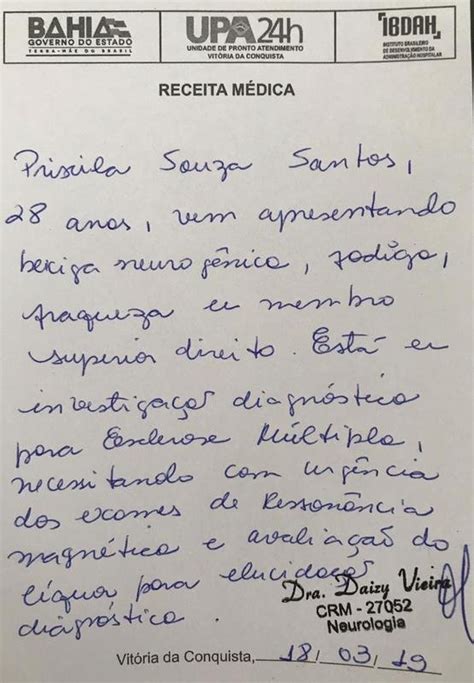 BAHIA
GOVERNO DO ESTADO
TERRA-MÃE DO BRASIL
UPA 24h
UNIDADE DE PRONTO ATENDIMENTO
VITÓRIA DA CONQUISTA
IBDAH
INSTITUTO BRASILEIRO
DE DESENVOLVIMENTO DA
ADMINISTRAÇÃO HOSPITALAR
RECEITA MÉDICA
Priscila Souza Santos,
28 anos, vem apresentando
bexiga neurogênica, fadiga,
fraqueza em membro
superior direito. Está em
investigação diagnóstica
para Esclerose Múltipla,
necessitando com urgência
dos exames de Ressonância
magnética e avaliação do
líquor para elucidação
diagnóstica.
Dra. Daizy Vieira
CRM - 27052
Neurologia
Vitória da Conquista, 18/03/19